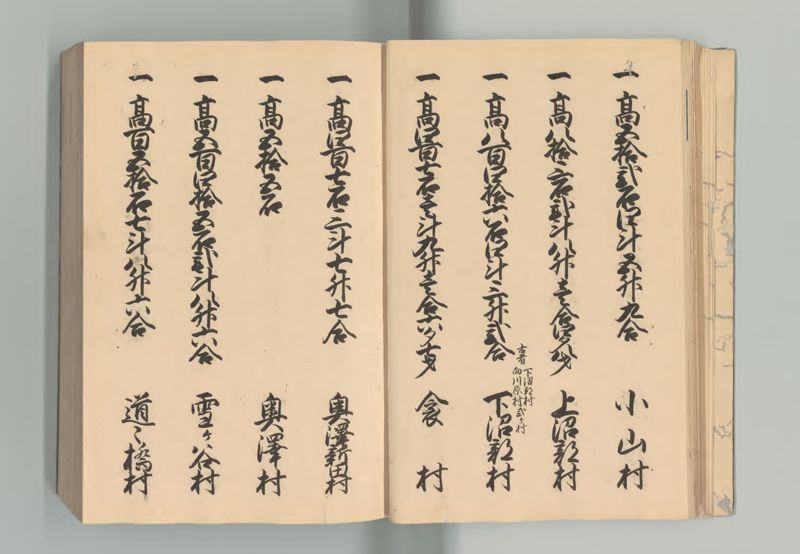 一 高五拾弐石四斗五升九合 小山村
一 高八拾三石弐斗八升壱合四夕八才 上沼部村
一 高八百四拾六石四斗三升弐合 下沼部村
古者 下沼部村
向川原村 弐ケ村
一 高四百七石壱斗九升壱合六夕 衾村
一 高四百七石三斗七升七合 奥澤新田村
一 高五拾五石 奥澤村
一 高五百四拾五石弐斗八升六合 雪ケ谷村
一 高百五拾石七斗八升六合 道々橋村